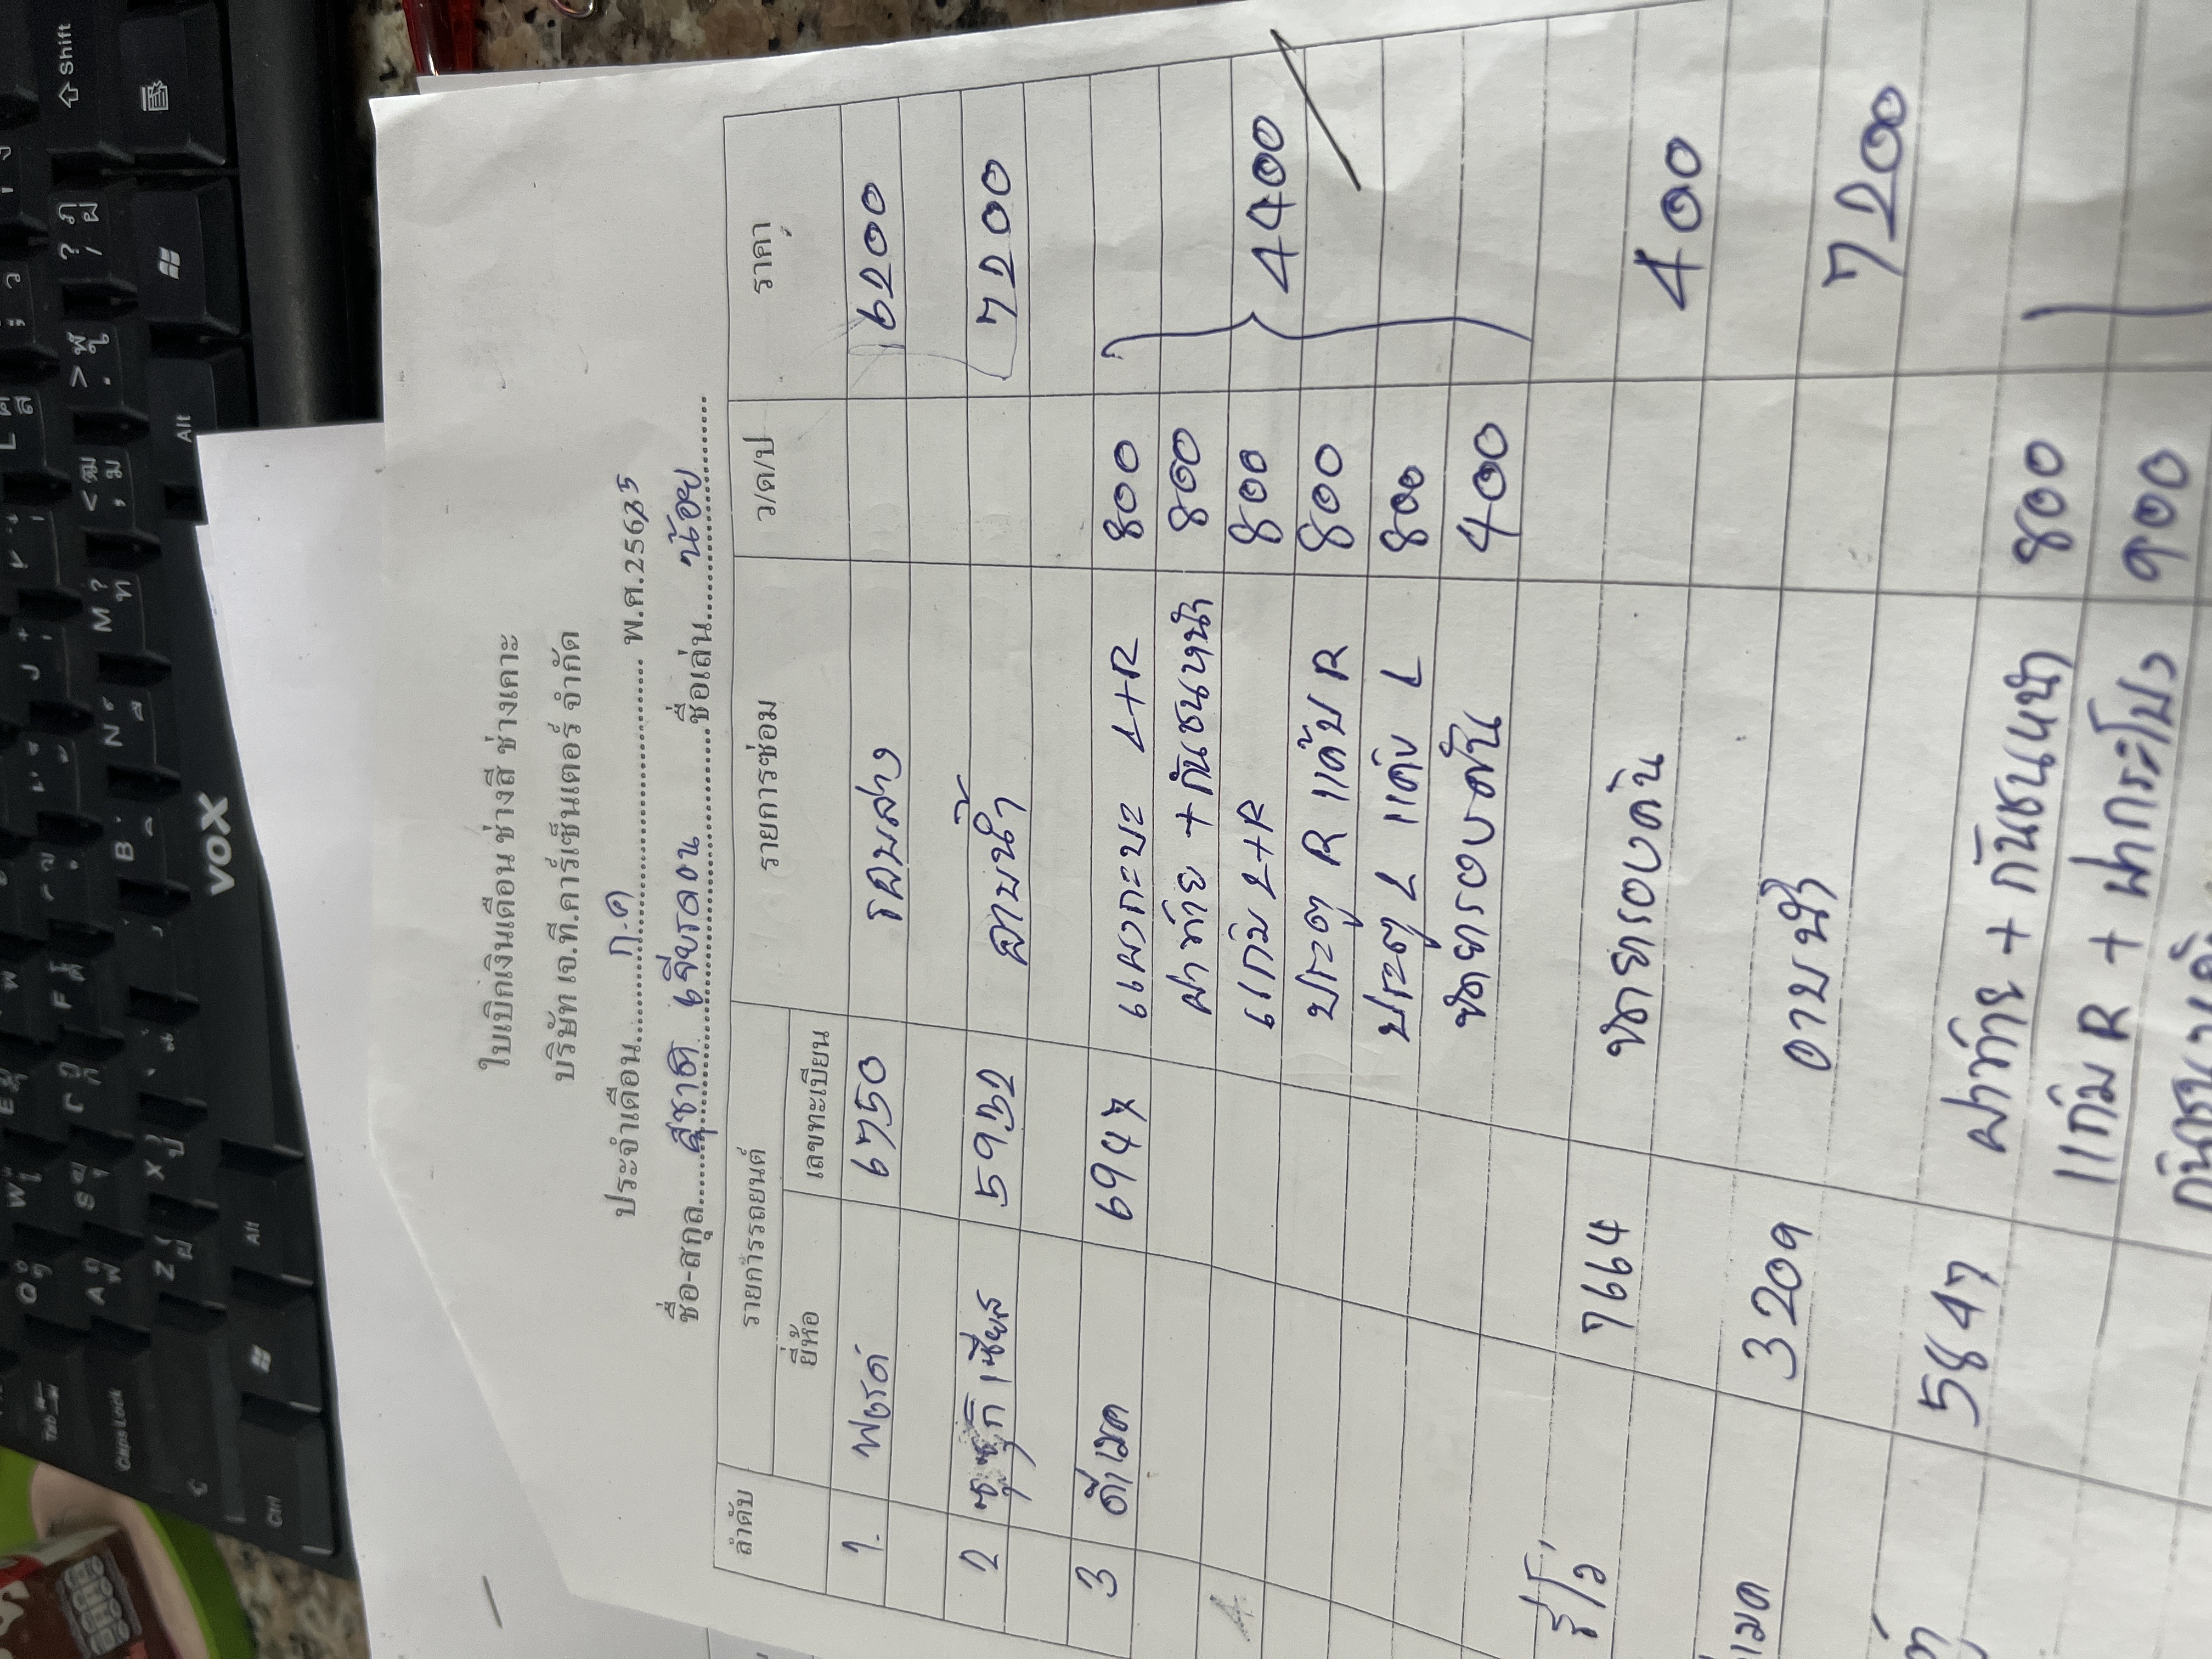 ใบเบิกเงินเดือน ช่างสี ช่างเคาะ
บริษัท เจ.ที.คาร์เซ็นเตอร์ จำกัด
ประจำเดือน ก.ค พ.ศ.2565
ชื่อ-สกุล สุชาติ ชื่อเล่น น้อย
ลำดับ รายการรถยนต์ รายการซ่อม ว/ด/ป ราคา
ยี่ห้อ เลขทะเบียน
1. ฟอร์ด 6750 6200
2 ซูซูกิ เซียส 5932 อาบน้ำ 7200
3 ดีแมค 6947 แผงกะบะ L+R 800
ฝาท้าย + กันชนหน้า 800
แก้ม L+R 800 4400
ประตู R แค๊ป R 800
ประตู L แค๊ป L 800
ชายรอบคัน 400
รีโว่ 7664 ชายรอบคัน 400
แมค 3209 อาบน้ำ 7200
5847 ฝาท้าย + กันชนหน้า 800
แก้ม R + ฝากระโปรง 900
VOX
Shift
Alt
Alt
Ctrl
Caps Lock
Tab